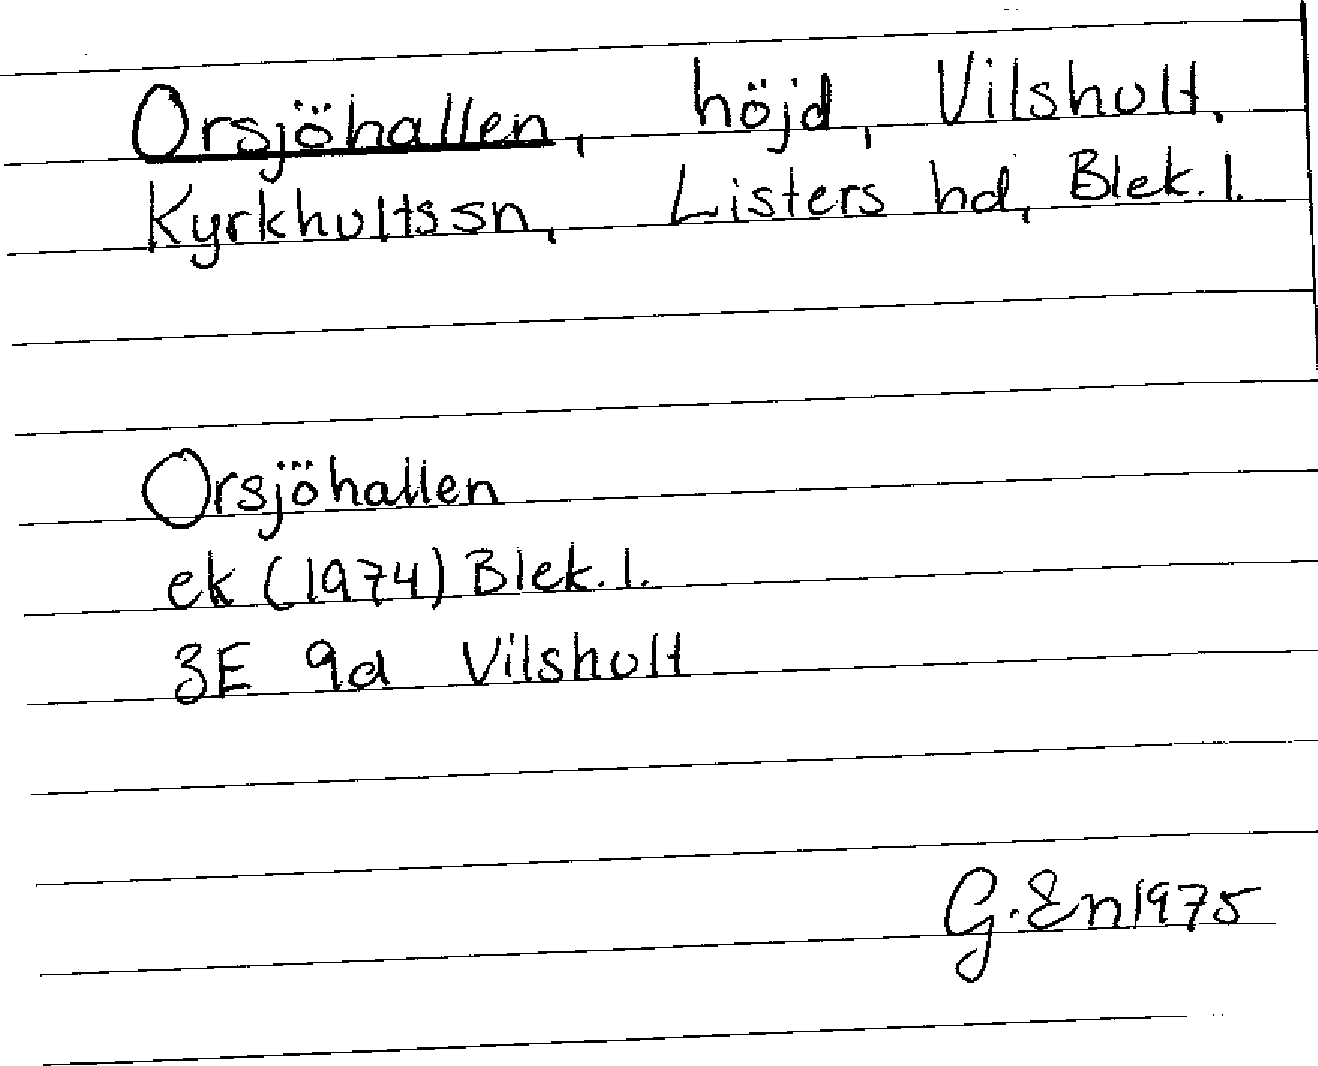 Orsjöhallen, höjd, Vilshult,
Kyrkhults sn, Listers hd, Blek. l.
Orsjöhallen
ek (1974) Blek. l.
3E 9d Vilshult
G. En 1975